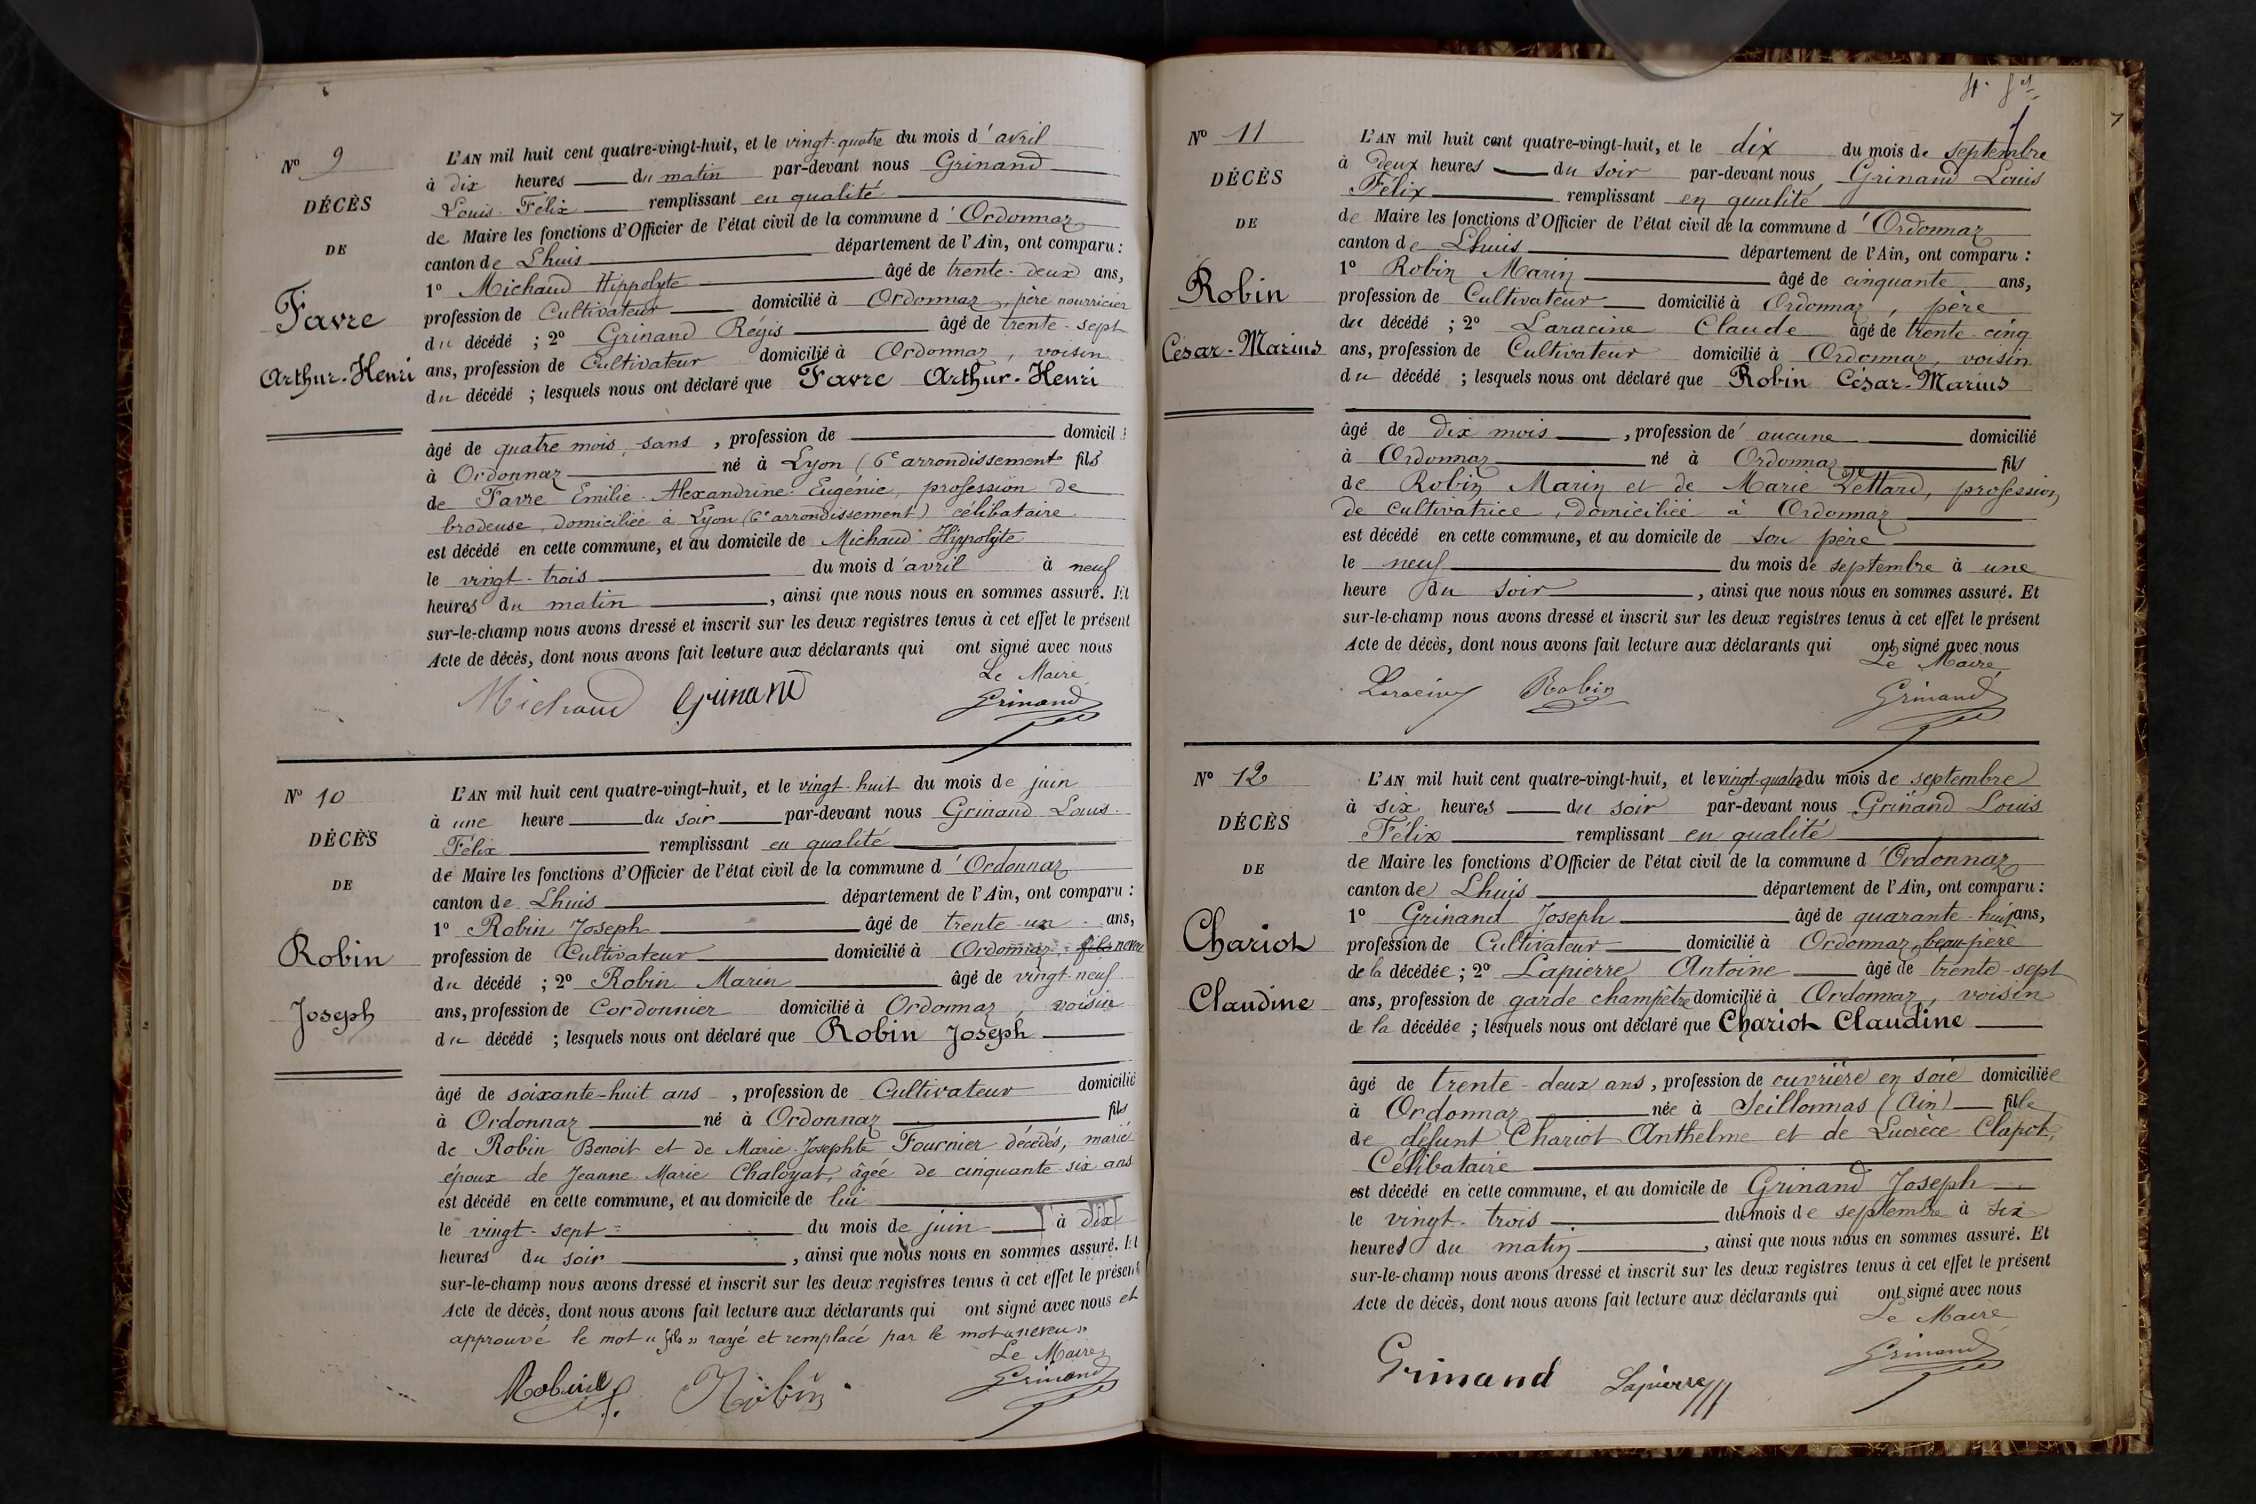 N° 9
DÉCÈS
DE
Favre
Arthur-Henri
L'AN mil huit cent quatre-vingt-huit, et le vingt-quatre du mois d'avril
à dix heures du matin par-devant nous Grinand
Louis Félix remplissant en qualité
de Maire les fonctions d'Officier de l'état civil de la commune d'Ordonnaz
canton de Lhuis département de l'Ain, ont comparu :
1° Michaud Hippolyte âgé de trente-deux ans,
profession de Cultivateur domicilié à Ordonnaz, père nourricier
du décédé ; 2° Grinand Régis âgé de trente-sept
ans, profession de Cultivateur domicilié à Ordonnaz, voisin
du décédé ; lesquels nous ont déclaré que Favre Arthur-Henri
âgé de quatre mois, sans, profession de domicil
à Ordonnaz né à Lyon (6e arrondissement fils
de Favre Emilie Alexandrine Eugénie, profession de
brodeuse, domiciliée à Lyon (6e arrondissement) célibataire
est décédé en cette commune, et au domicile de Michaud Hippolyte
le vingt-trois du mois d'avril à neuf
heures du matin, ainsi que nous nous en sommes assuré. Et
sur-le-champ nous avons dressé et inscrit sur les deux registres tenus à cet effet le présent
Acte de décès, dont nous avons fait lecture aux déclarants qui ont signé avec nous
Le Maire
Michaud Grinand Grinand
N° 10
DÉCÈS
DE
Robin
Joseph
L'AN mil huit cent quatre-vingt-huit, et le vingt-huit du mois de juin
à une heure du soir par-devant nous Grinand Louis
Félix remplissant en qualité
de Maire les fonctions d'Officier de l'état civil de la commune d'Ordonnaz
canton de Lhuis département de l'Ain, ont comparu :
1° Robin Joseph âgé de trente-un ans,
profession de Cultivateur domicilié à Ordonnaz, fils neveu
du décédé ; 2° Robin Marin âgé de vingt-neuf
ans, profession de Cordonnier domicilié à Ordonnaz, voisin
du décédé ; lesquels nous ont déclaré que Robin Joseph
âgé de soixante-huit ans, profession de Cultivateur domicilié
à Ordonnaz né à Ordonnaz fils
de Robin Benoit et de Marie-Josephte Fournier décédés, marié
époux de Jeanne Marie Chaloyat, âgée de cinquante-six ans
est décédé en cette commune, et au domicile de lui
le vingt-sept du mois de juin à dix
heures du soir, ainsi que nous nous en sommes assuré. Et
sur-le-champ nous avons dressé et inscrit sur les deux registres tenus à cet effet le présent
Acte de décès, dont nous avons fait lecture aux déclarants qui ont signé avec nous et
approuvé le mot « fils » rayé et remplacé par le mot « neveu »
Le Maire
Robin Robin Grinand
7
N° 11
DÉCÈS
DE
Robin
César-Marius
L'AN mil huit cent quatre-vingt-huit, et le dix du mois de septembre
à deux heures du soir par-devant nous Grinand Louis
Félix remplissant en qualité
de Maire les fonctions d'Officier de l'état civil de la commune d'Ordonnaz
canton de Lhuis département de l'Ain, ont comparu :
1° Robin Marin âgé de cinquante ans,
profession de Cultivateur domicilié à Ordonnaz, père
du décédé ; 2° Laracine Claude âgé de trente-cinq
ans, profession de Cultivateur domicilié à Ordonnaz, voisin
du décédé ; lesquels nous ont déclaré que Robin César-Marius
âgé de dix mois, profession de aucune domicilié
à Ordonnaz né à Ordonnaz fils
de Robin Marin et de Marie Lettard, profession
de cultivatrice, domiciliée à Ordonnaz
est décédé en cette commune, et au domicile de son père
le neuf du mois de septembre à une
heure du soir, ainsi que nous nous en sommes assuré. Et
sur-le-champ nous avons dressé et inscrit sur les deux registres tenus à cet effet le présent
Acte de décès, dont nous avons fait lecture aux déclarants qui ont signé avec nous
Le Maire
Laracine Robin Grinand
N° 12
DÉCÈS
DE
Chariot
Claudine
L'AN mil huit cent quatre-vingt-huit, et le vingt-quatre du mois de septembre
à six heures du soir par-devant nous Grinand Louis
Félix remplissant en qualité
de Maire les fonctions d'Officier de l'état civil de la commune d'Ordonnaz
canton de Lhuis département de l'Ain, ont comparu :
1° Grinand Joseph âgé de quarante-huit ans,
profession de Cultivateur domicilié à Ordonnaz, beau-père
de la décédée ; 2° Lapierre Antoine âgé de trente-sept
ans, profession de garde champêtre domicilié à Ordonnaz, voisin
de la décédée ; lesquels nous ont déclaré que Chariot Claudine
âgé de trente-deux ans, profession de ouvrière en soie domiciliée
à Ordonnaz née à Seillonnas (Ain) fille
de défunt Chariot Anthelme et de Lucrèce Clapot,
Célibataire
est décédé en cette commune, et au domicile de Grinand Joseph
le vingt-trois du mois de septembre à six
heures du matin, ainsi que nous nous en sommes assuré. Et
sur-le-champ nous avons dressé et inscrit sur les deux registres tenus à cet effet le présent
Acte de décès, dont nous avons fait lecture aux déclarants qui ont signé avec nous
Le Maire
Grinand Lapierre Grinand